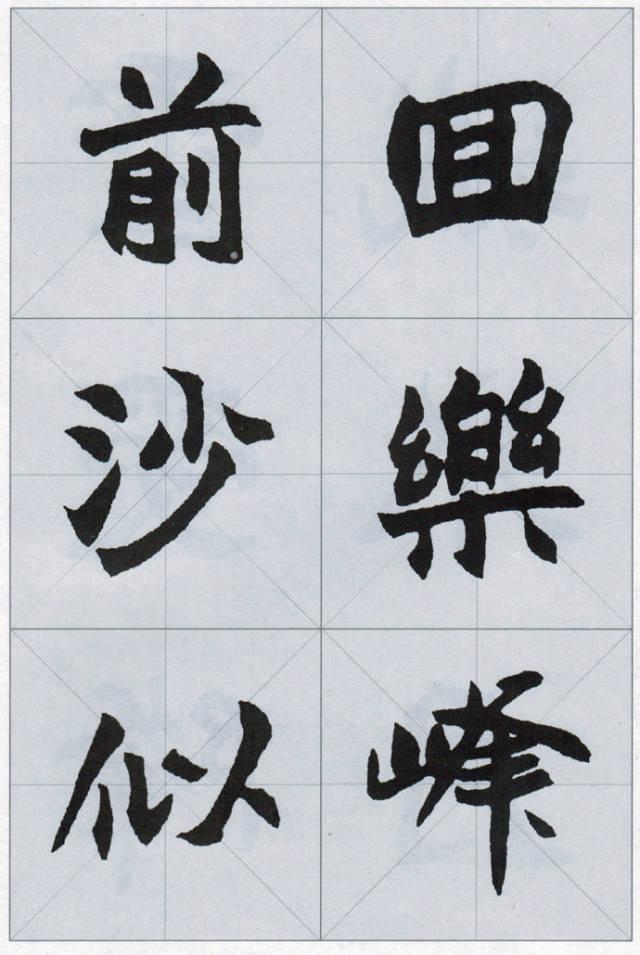 囬樂峰
前沙似